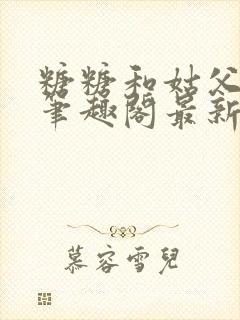 糖糖和姑父
笔趣阁最新
慕容雪兒